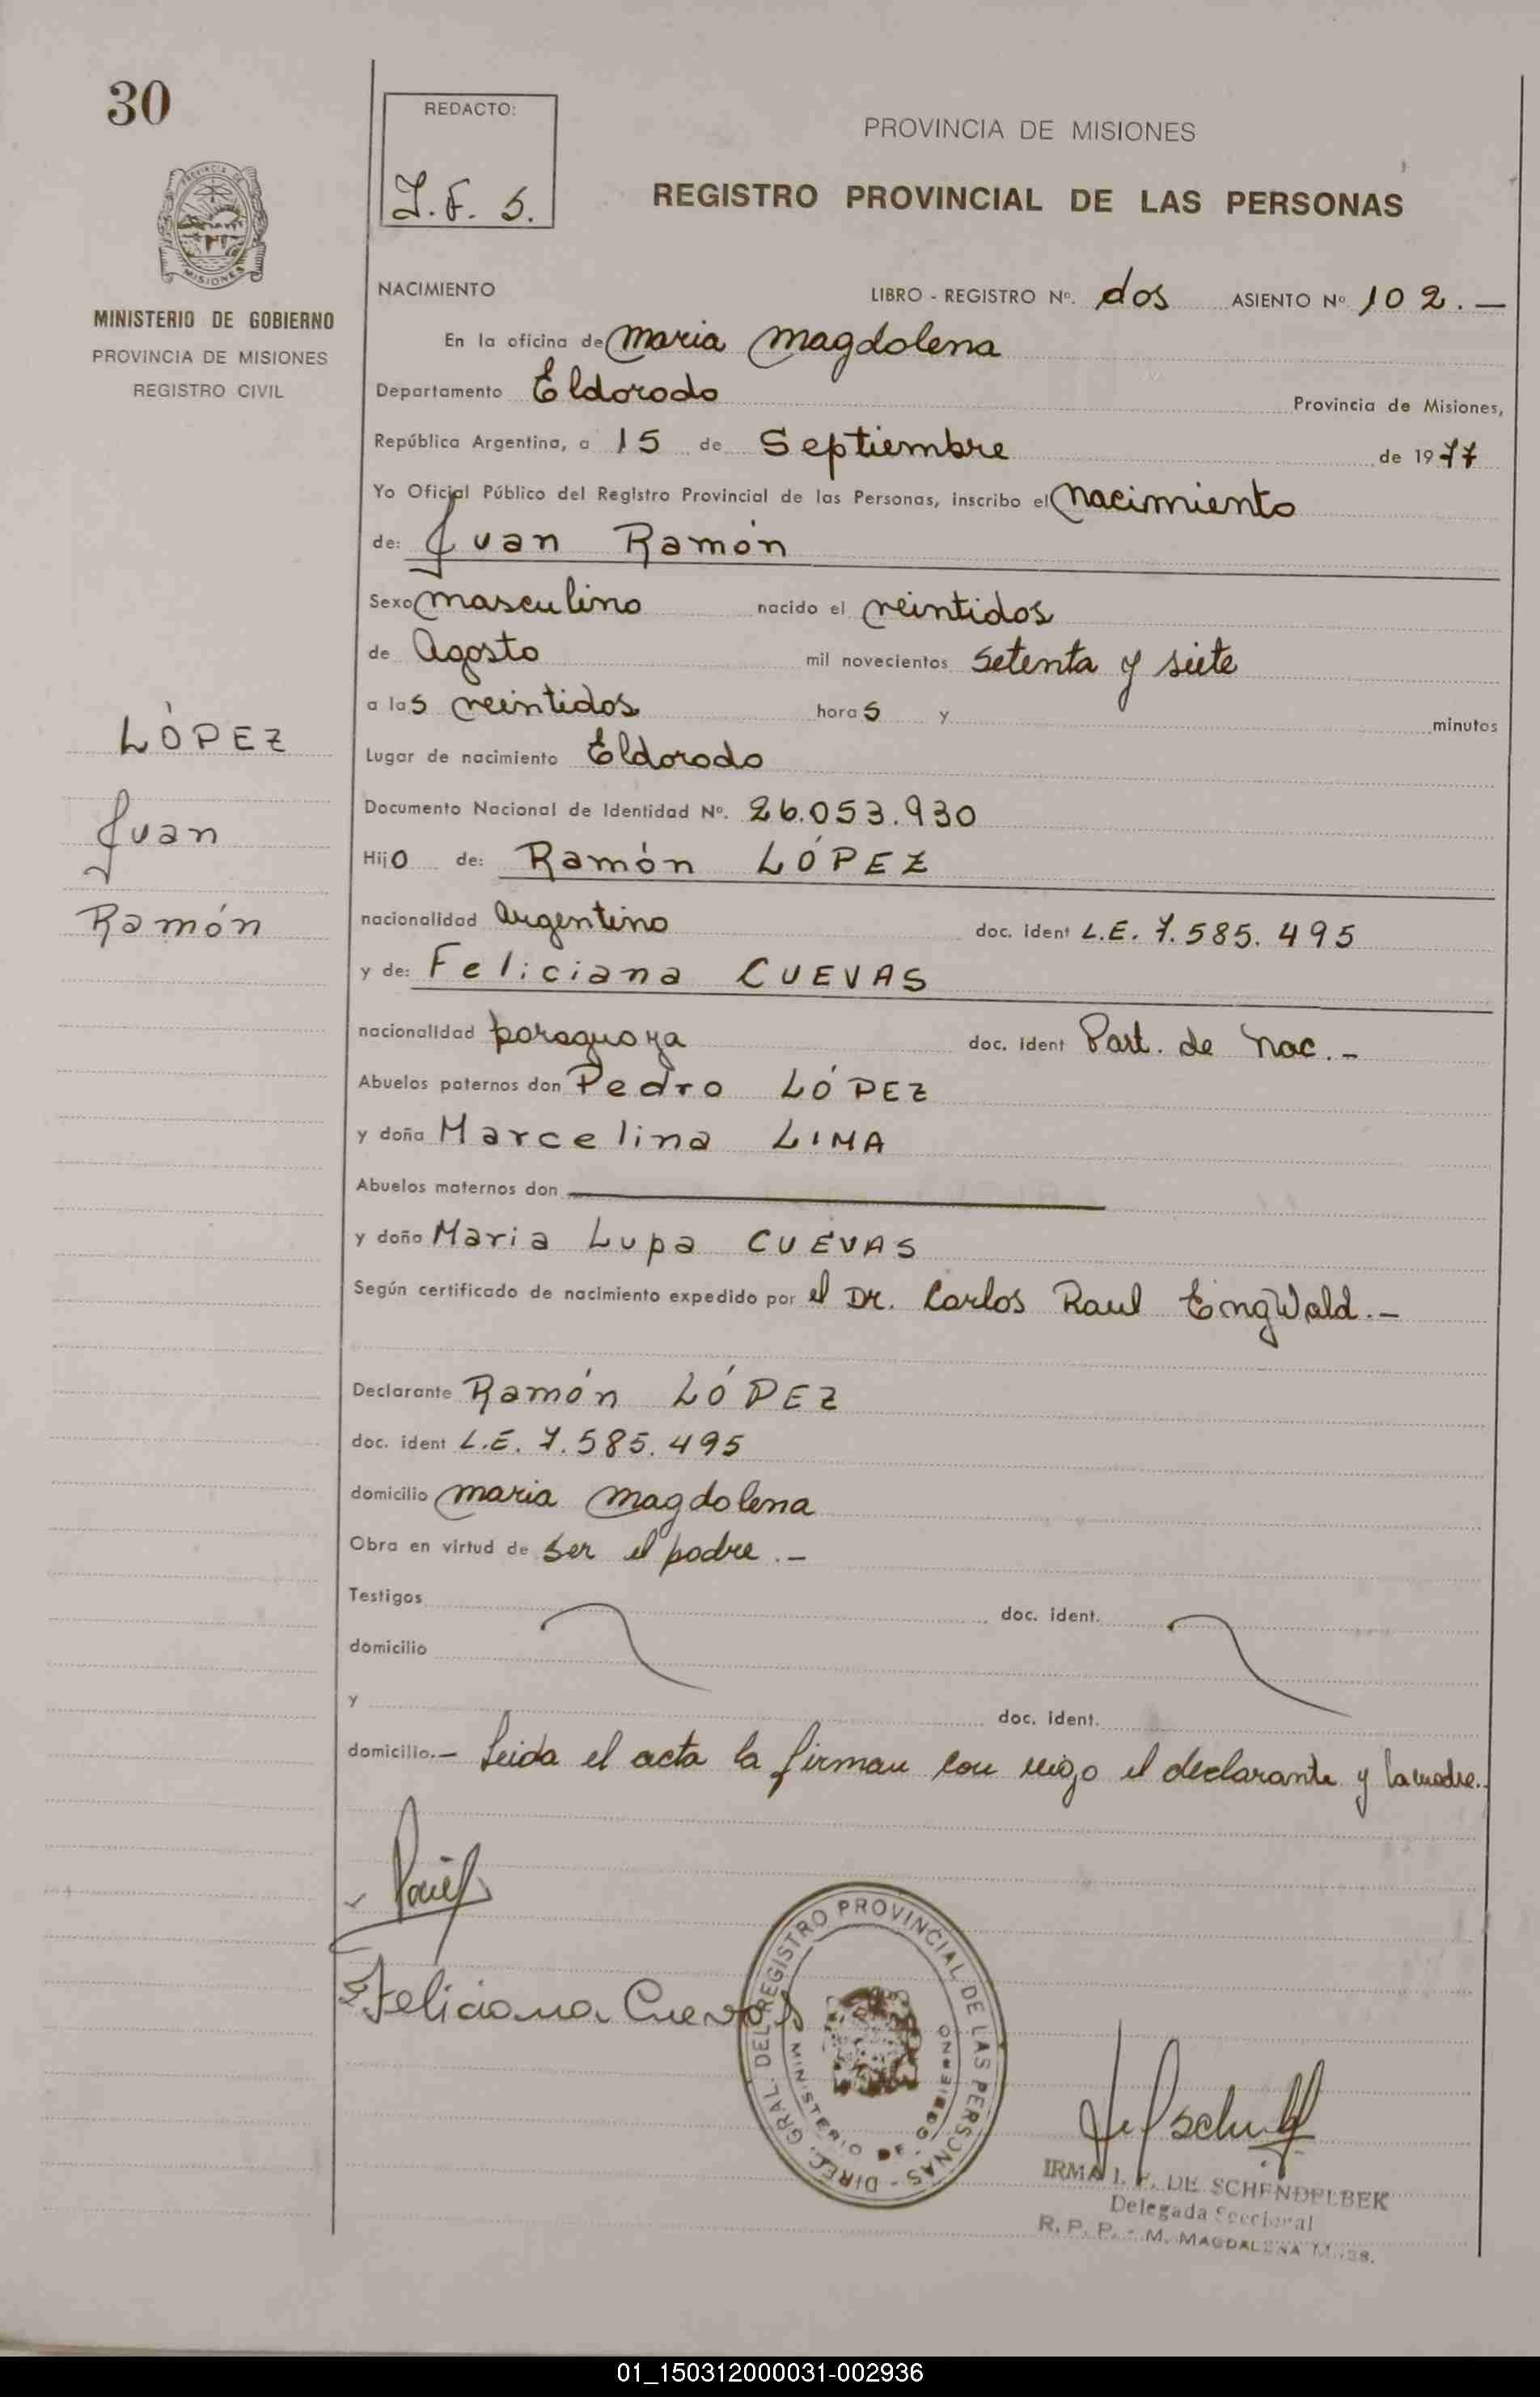 30
REDACTO:
PROVINCIA DE MISIONES
J.F. S.
REGISTRO PROVINCIAL DE LAS PERSONAS
PROVINCIA DE MISIONES
MINISTERIO DE GOBIERNO
PROVINCIA DE MISIONES
REGISTRO CIVIL
NACIMIENTO LIBRO - REGISTRO Nº. dos ASIENTO Nº 102.—
En la oficina de Maria Magdalena
Departamento Eldorado Provincia de Misiones,
República Argentina, a 15 de Septiembre de 1977
Yo Oficial Público del Registro Provincial de las Personas, inscribo el Nacimiento
de: Juan Ramón
Sexo masculino nacido el veintidos
de Agosto mil novecientos setenta y siete
a las veintidos horas y minutos
LÓPEZ
Juan
Ramón
Lugar de nacimiento Eldorado
Documento Nacional de Identidad Nº. 26.053.930
Hijo de: Ramón LÓPEZ
nacionalidad Argentino doc. ident L.E. 7.585.495
y de: Feliciana CUEVAS
nacionalidad paraguaya doc. ident Part. de Nac.-
Abuelos paternos don Pedro LÓPEZ
y doña Marcelina LIMA
Abuelos maternos don
y doña Maria Lupa CUEVAS
Según certificado de nacimiento expedido por el Dr. Carlos Raul Eingwald.-
Declarante Ramón LÓPEZ
doc. ident L.E. 7.585.495
domicilio Maria Magdalena
Obra en virtud de ser el padre.-
Testigos doc. ident.
domicilio
y doc. ident.
domicilio.- Leida el acta la firman con migo el declarante y la madre.
Feliciana Cuevas
DIREC. GRAL. DEL REGISTRO PROVINCIAL DE LAS PERSONAS -
MINISTERIO DE GOBIERNO
IRMA I. F. DE SCHENDELBEK
Delegada Seccional
R. P. P. - M. MAGDALENA Mnes.
01_150312000031-002936